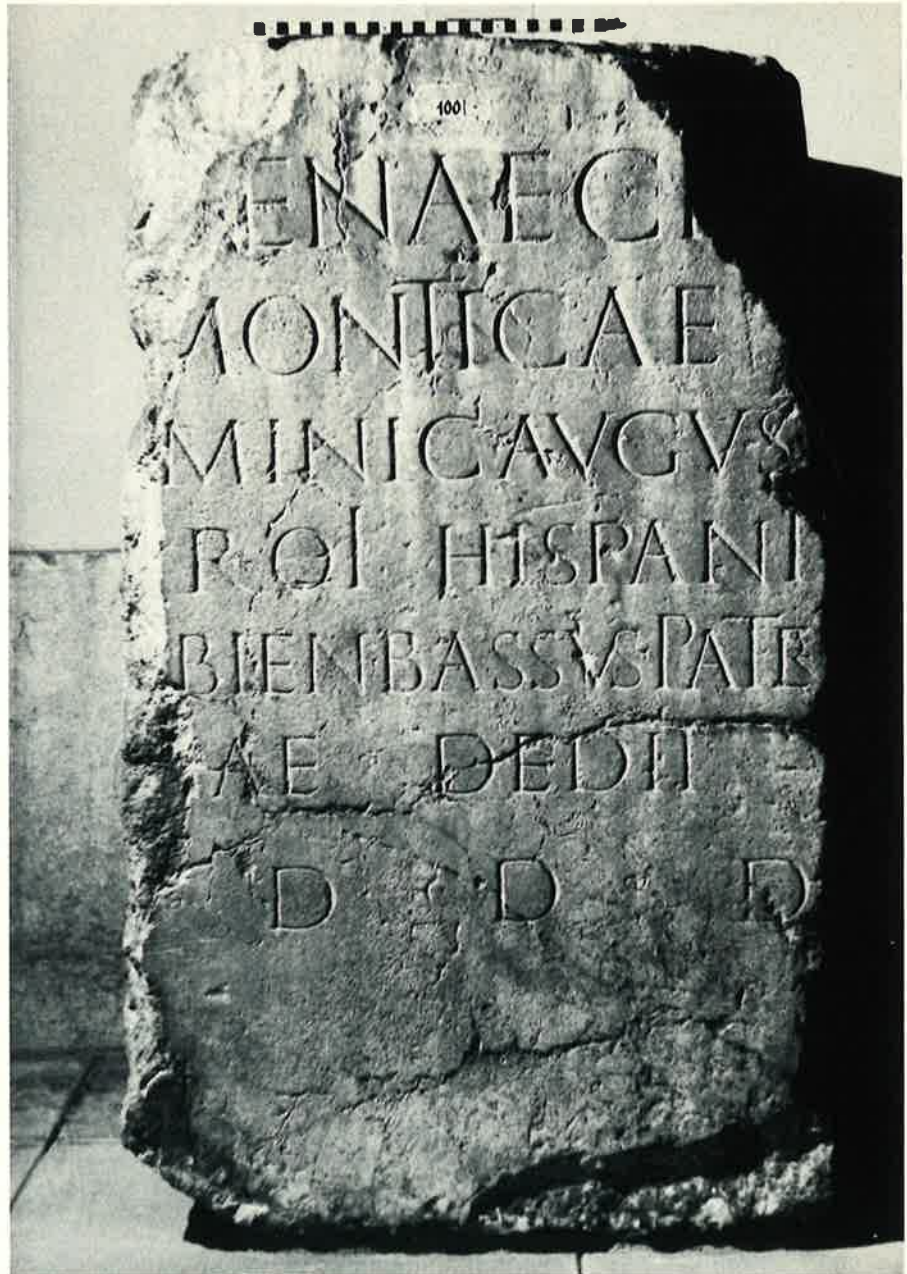 1001
ENAECI
MONTICAE
MINICAVGVS
ROI HISPANI
BIENBASSVSPATR
AE DEDIT
D D D